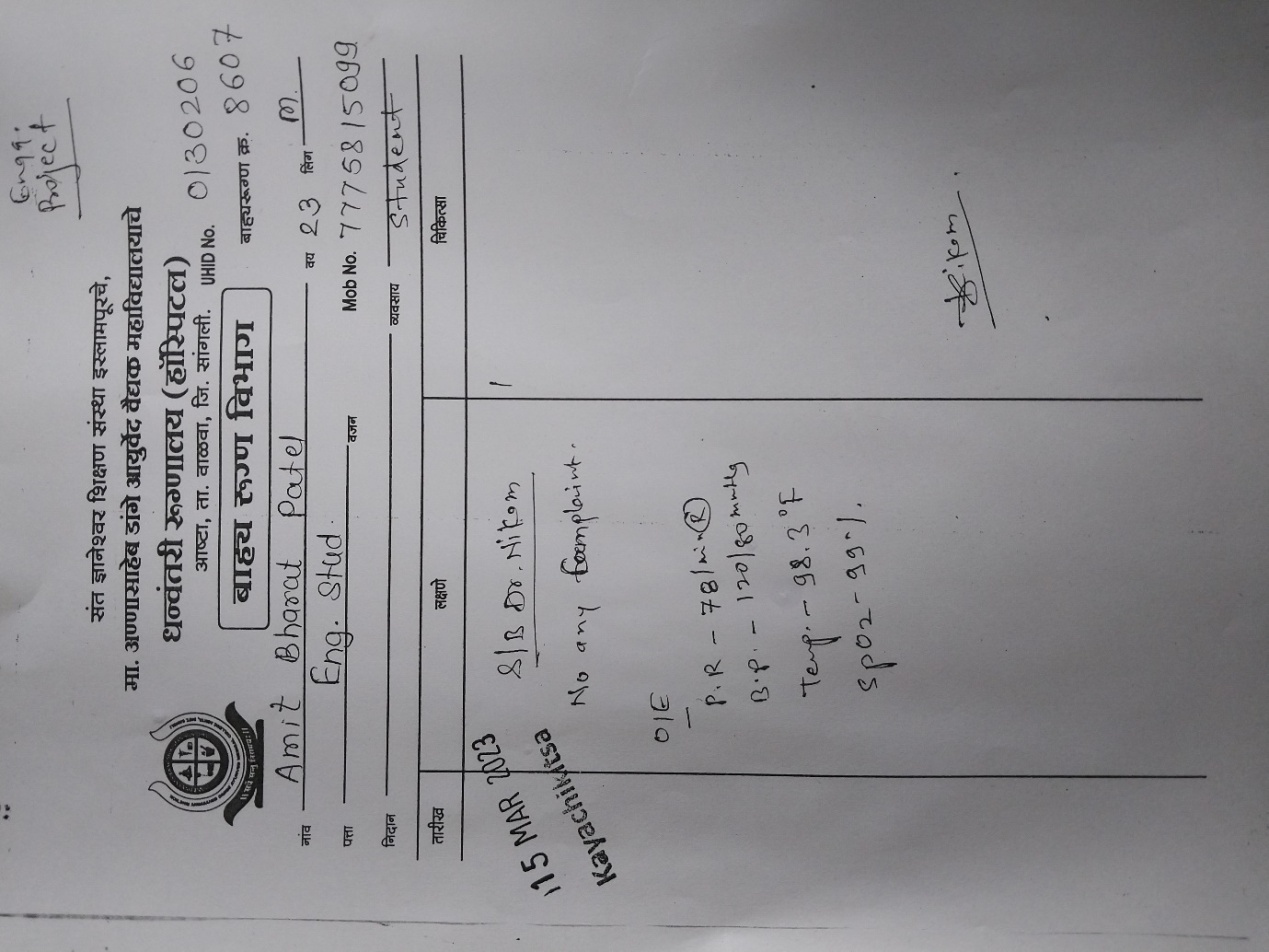 Engg.
Project
संत ज्ञानेश्वर शिक्षण संस्था इस्लामपूरचे,
मा. अण्णासाहेब डांगे आयुर्वेद वैद्यक महाविद्यालयाचे
धन्वंतरी रूग्णालय (हॉस्पिटल)
आष्टा, ता. वाळवा, जि. सांगली. UHID No. 0130206
बाह्य रूग्ण विभाग बाह्यरूग्ण क्र. 8607
नांव Amit Bharat Patel वय 23 लिंग M.
पत्ता Eng. Stud. वजन Mob No. 7775815099
निदान व्यवसाय Student
तारीख लक्षणे चिकित्सा
15 MAR 2023 S/B Dr. Nikam
Kayachikitsa No any Complaint.
O/E
P.R - 78/min (R)
B.P. - 120/80 mmHg
Temp. - 98.3 °F
SpO2 - 99%.